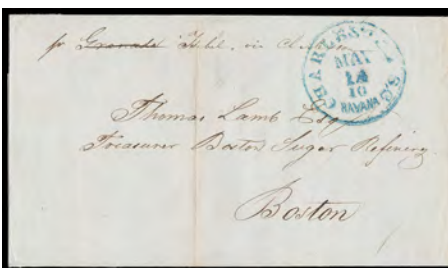 pr Granada Isbel, via Charleston
CHARLESTON S.C.
MAY
14
10
HAVANA
Thomas Lamb Esq
Treasurer Boston Sugar Refinery
Boston